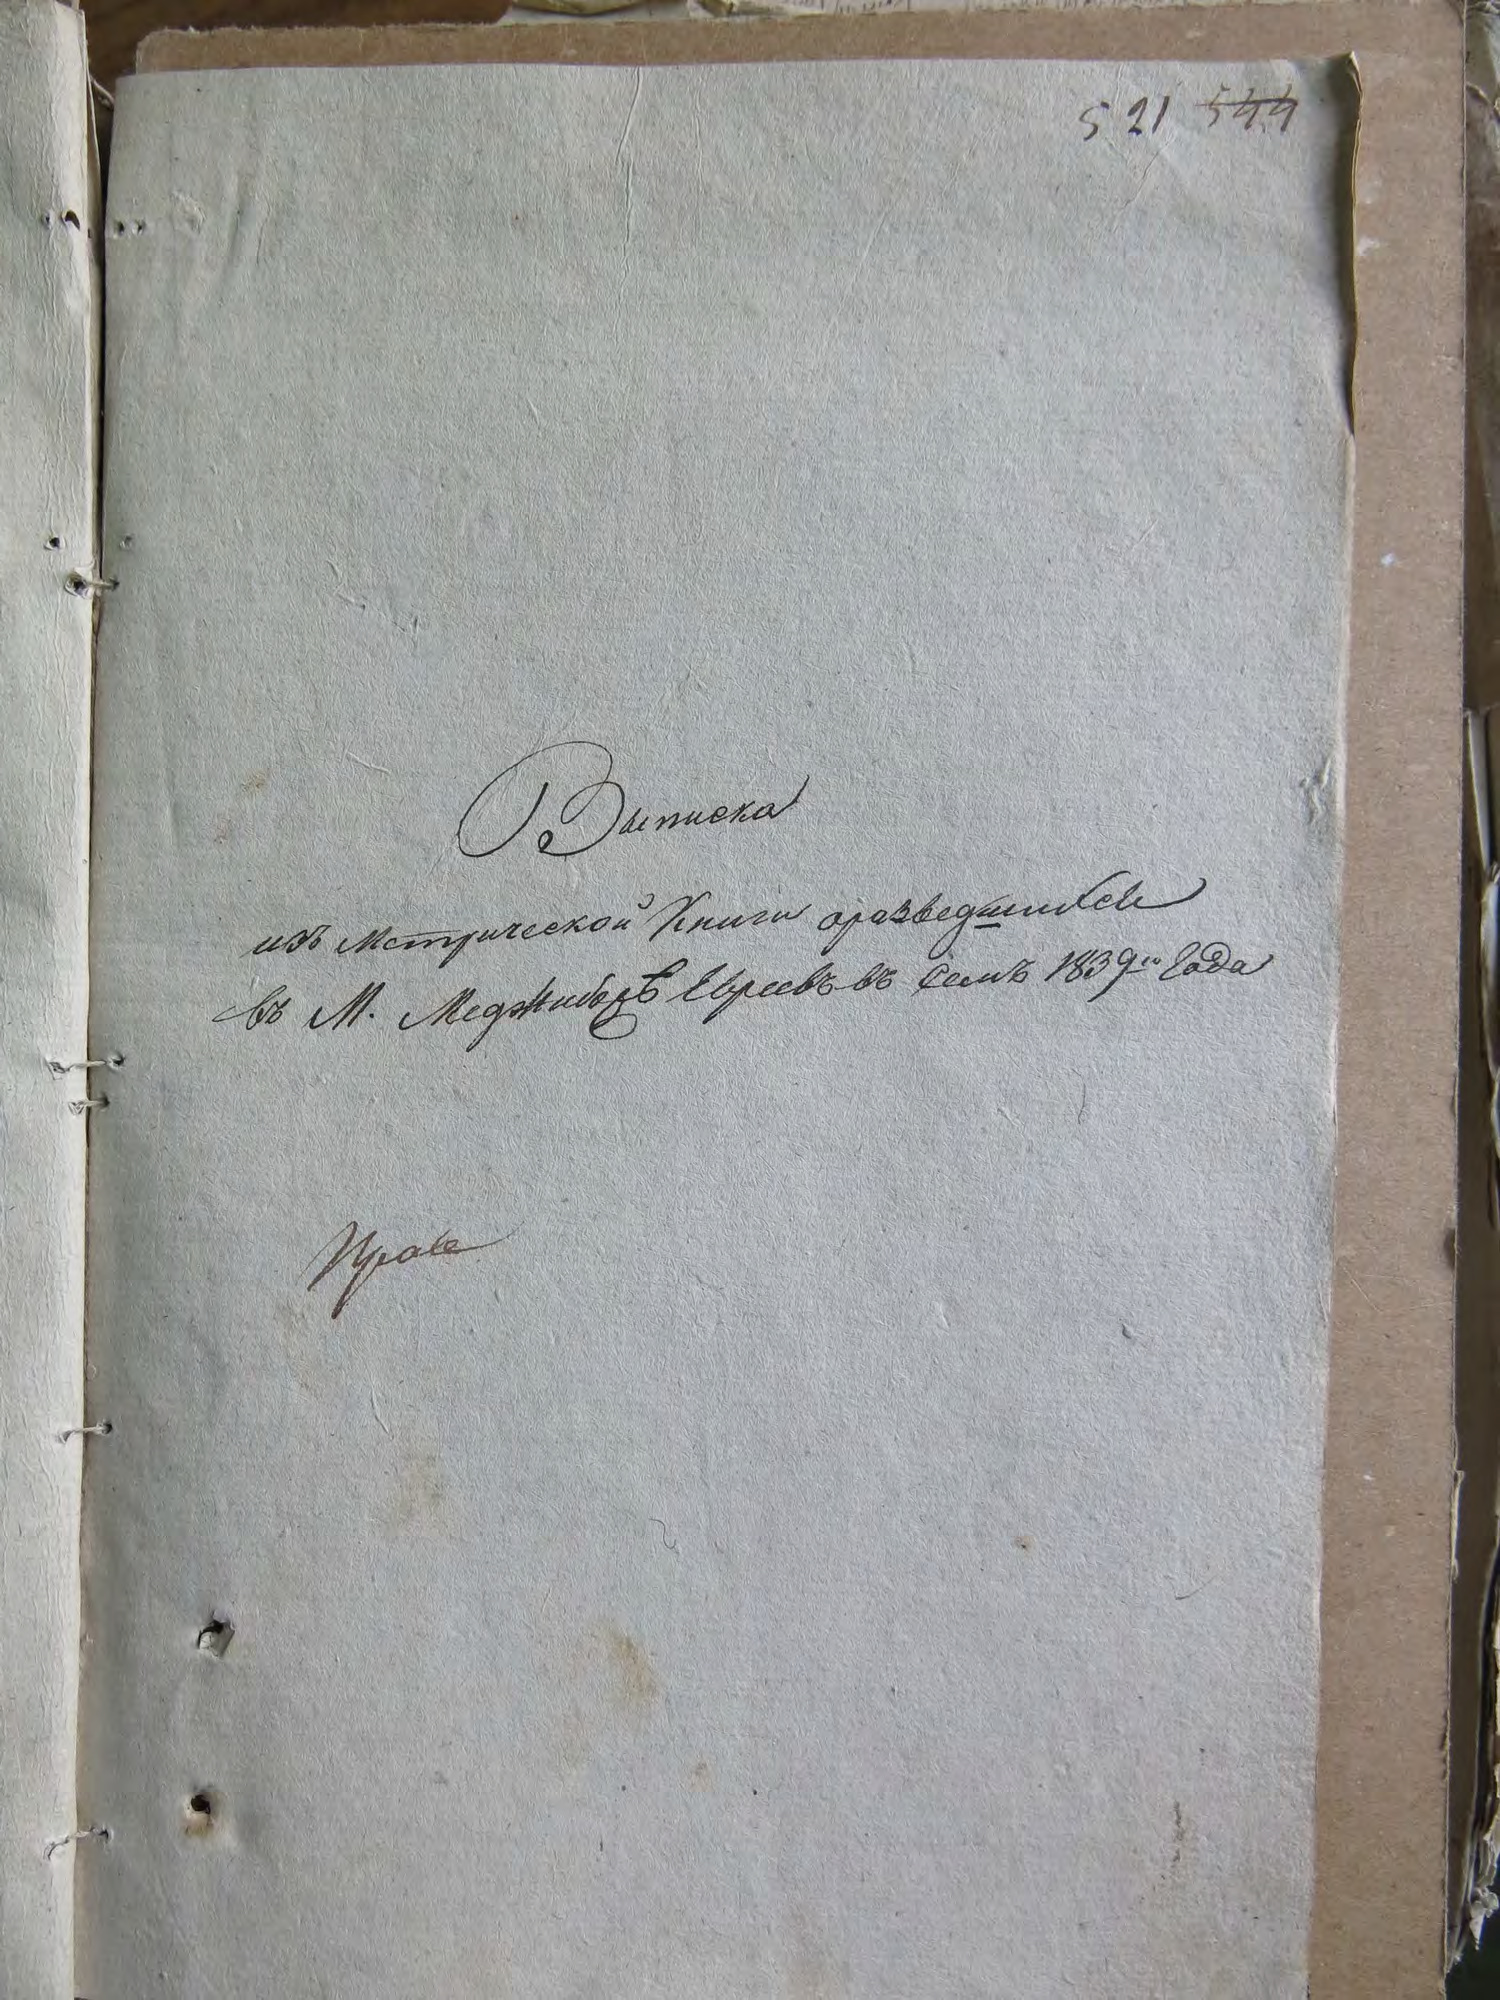 521 544
Выписка
изъ Метрической Книги оразведшихся
въ М. Меджибожѣ Евреевъ въ семъ 1839го Года